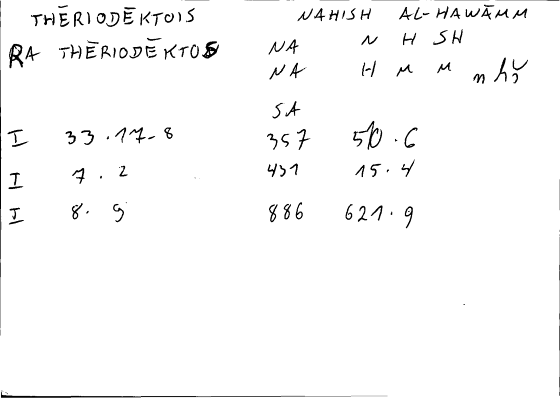 THĒRIODĒKTOIS NAHISH AL-HAWĀMM
RA THĒRIODĒKTOS NA N H SH
NA H M M
SA
I 33.17-8 357 50.6
I 7.2 431 15.4
I 8.9 886 621.9